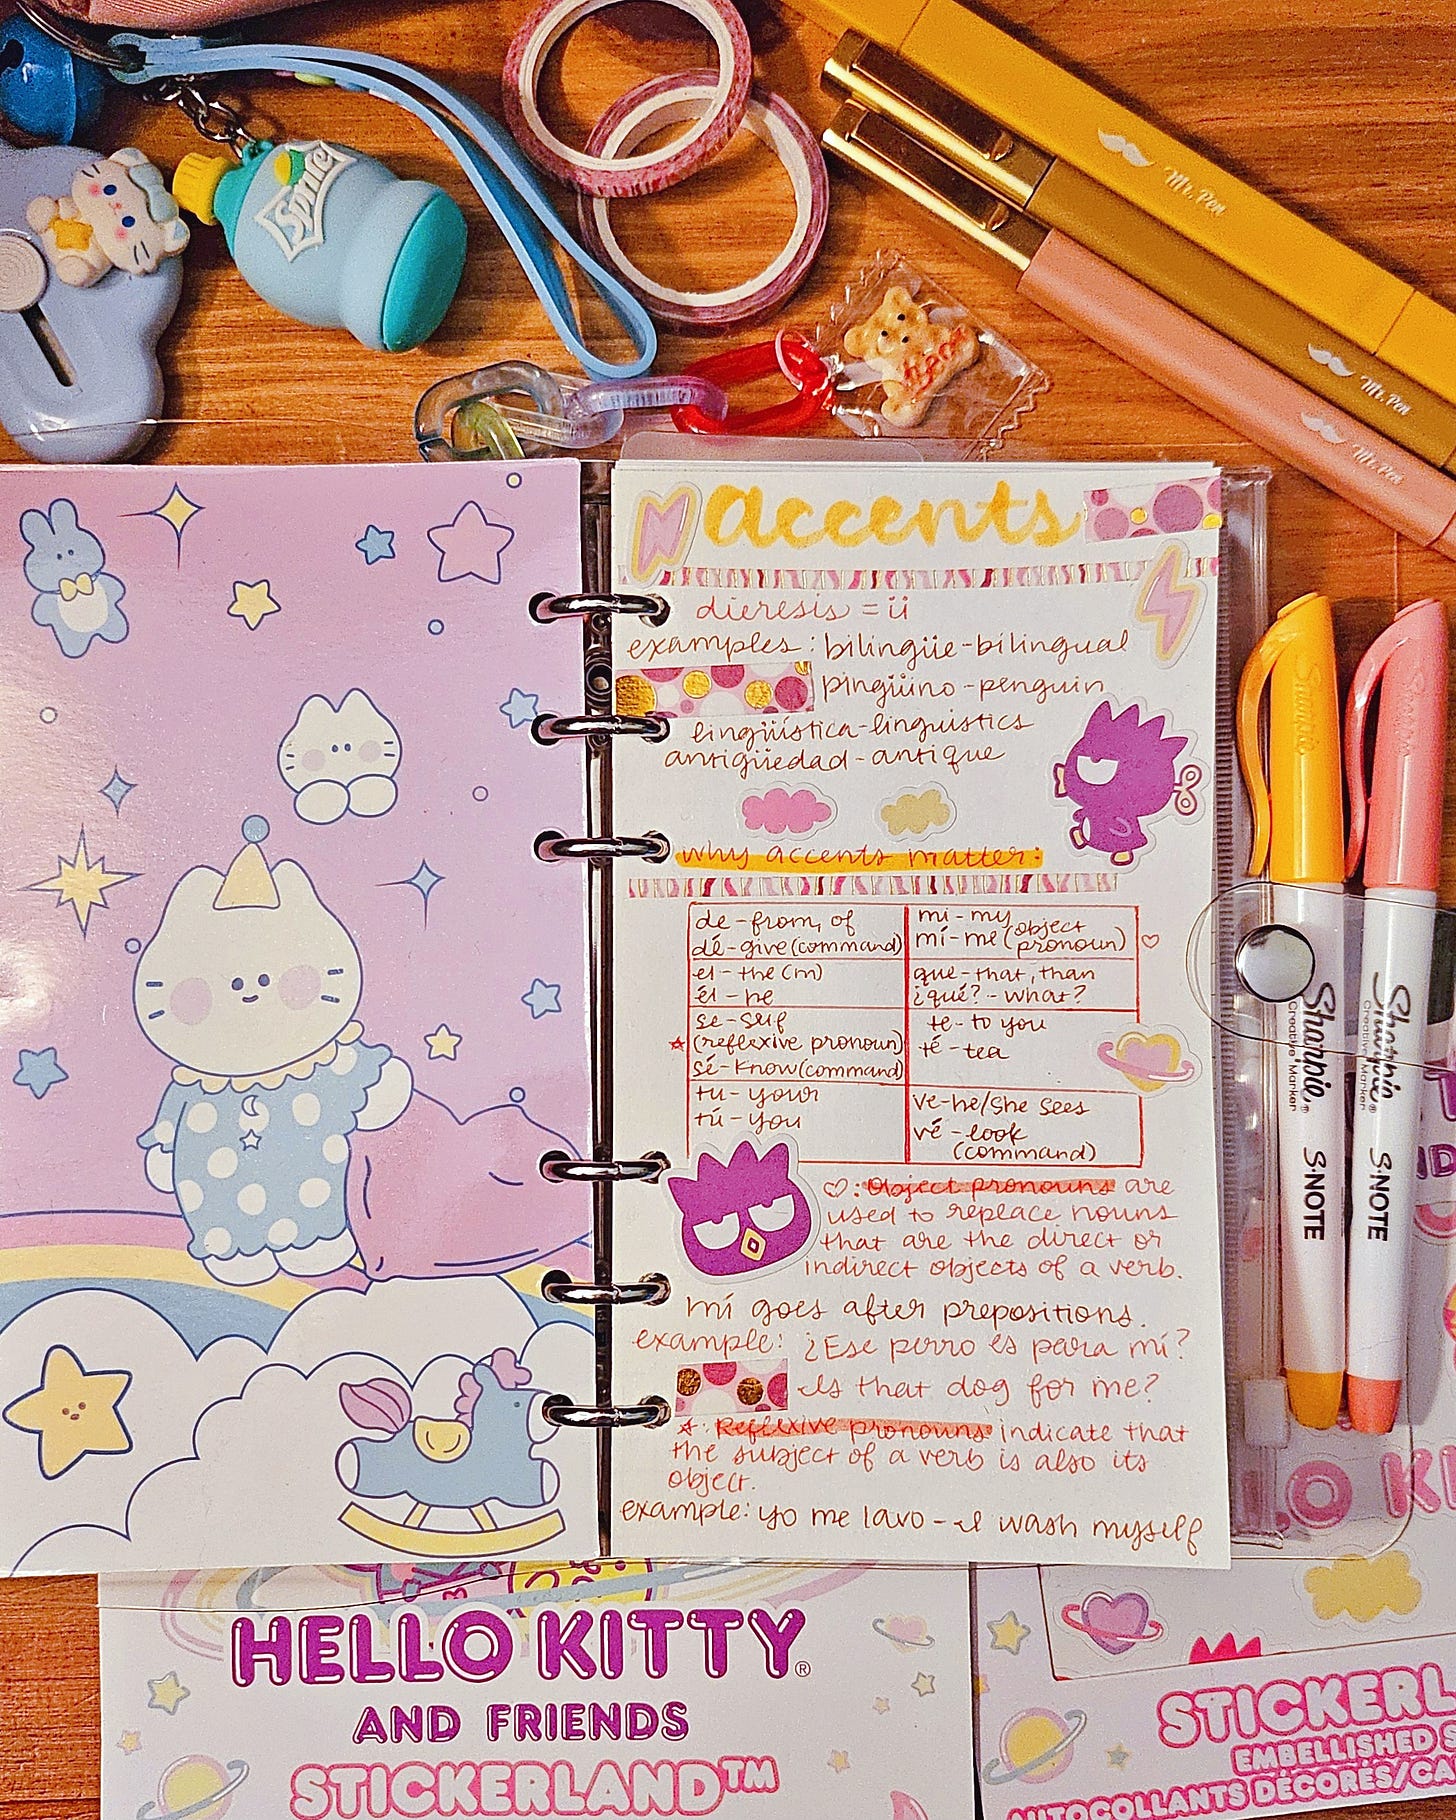 Sprite
Mr. Pen
Mr. Pen
Mr. Pen
accents
dieresis = ü
examples: bilingüe - bilingual
pingüino - penguin
lingüística - linguistics
antigüedad - antique
why accents matter:
de - from, of
dé - give (command)
mi - my
mí - me (object pronoun) ♡
el - the (m)
él - he
que - that, than
¿qué? - what?
se - self
☆ (reflexive pronoun)
sé - know (command)
te - to you
té - tea
tu - your
tú - you
ve - he/she sees
vé - look
(command)
♡: Object pronouns are
used to replace nouns
that are the direct or
indirect objects of a verb.
mí goes after prepositions.
example: ¿Ese perro es para mí?
Is that dog for me?
☆: Reflexive pronouns indicate that
the subject of a verb is also its
object.
example: yo me lavo - I wash myself
Sharpie®
Creative Marker
S·NOTE
Sharpie®
Creative Marker
S·NOTE
HELLO KITTY®
AND FRIENDS
STICKERLAND™
STICKERL
EMBELLISHED S
AUTOCOLLANTS DÉCORÉS/CA